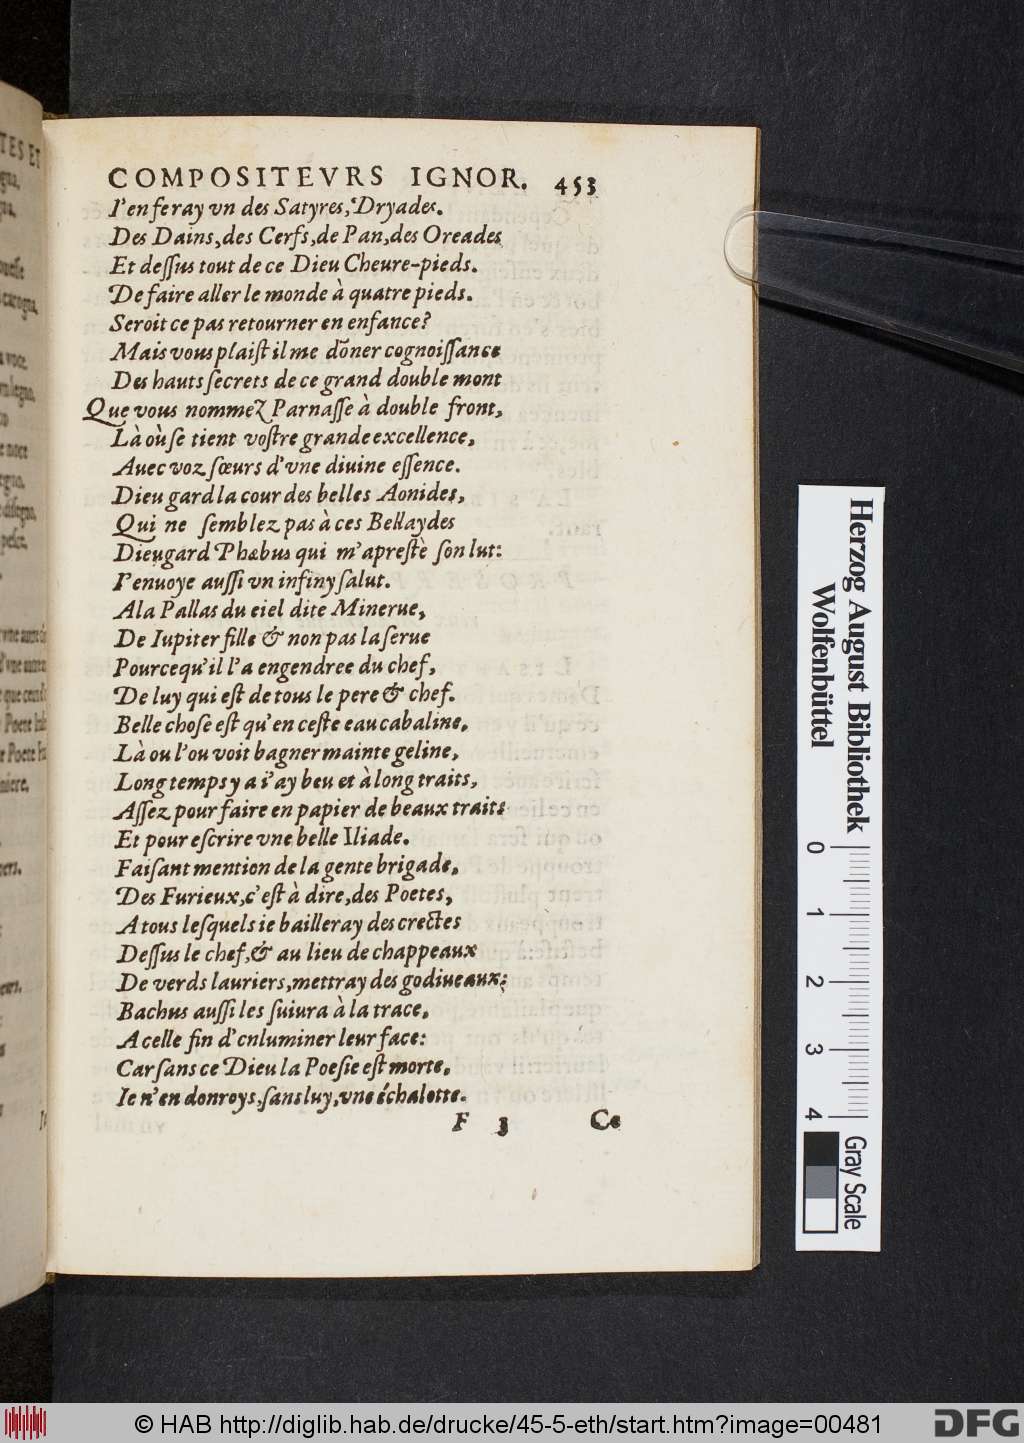 COMPOSITEVRS IGNOR. 453
I'en feray vn des Satyres, Dryades.
Des Dains, des Cerfs, de Pan, des Oreades
Et deſſus tout de ce Dieu Cheure-pieds.
De faire aller le monde à quatre pieds.
Seroit ce pas retourner en enfance?
Mais vous plaiſt il me dõner cognoiſſance
Des hauts ſecrets de ce grand double mont
Que vous nommez Parnaſſe à double front,
Là où ſe tient voſtre grande excellence,
Auec voz ſœurs d'vne diuine eſſence.
Dieu gard la cour des belles Aonides,
Qui ne ſemblez pas à ces Bellaydes
Dieu gard Phœbus qui m'apreſtè ſon lut:
I'enuoye auſſi vn infiny ſalut.
A la Pallas du eiel dite Minerue,
De Iupiter fille & non pas la ſerue
Pource qu'il l'a engendree du chef,
De luy qui eſt de tous le pere & chef.
Belle choſe eſt qu'en ceſte eau cabaline,
Là ou l'ou voit bagner mainte geline,
Long temps y a i'ay beu et à long traits,
Aſſez pour faire en papier de beaux traits
Et pour eſcrire vne belle Iliade.
Faiſant mention de la gente brigade,
Des Furieux, c'eſt à dire, des Poetes,
A tous leſquels ie bailleray des crectes
Deſſus le chef, & au lieu de chappeaux
De verds lauriers, mettray des godiueaux:
Bachus auſſi les ſuiura à la trace,
A celle fin d'cnluminer leur face:
Car ſans ce Dieu la Poeſie eſt morte,
Ie n'en donroys, ſans luy, vne échalotte.
F 3 Ce
Herzog August Bibliothek
Wolfenbüttel
0 1 2 3 4
Gray Scale
© HAB http://diglib.hab.de/drucke/45-5-eth/start.htm?image=00481
DFG